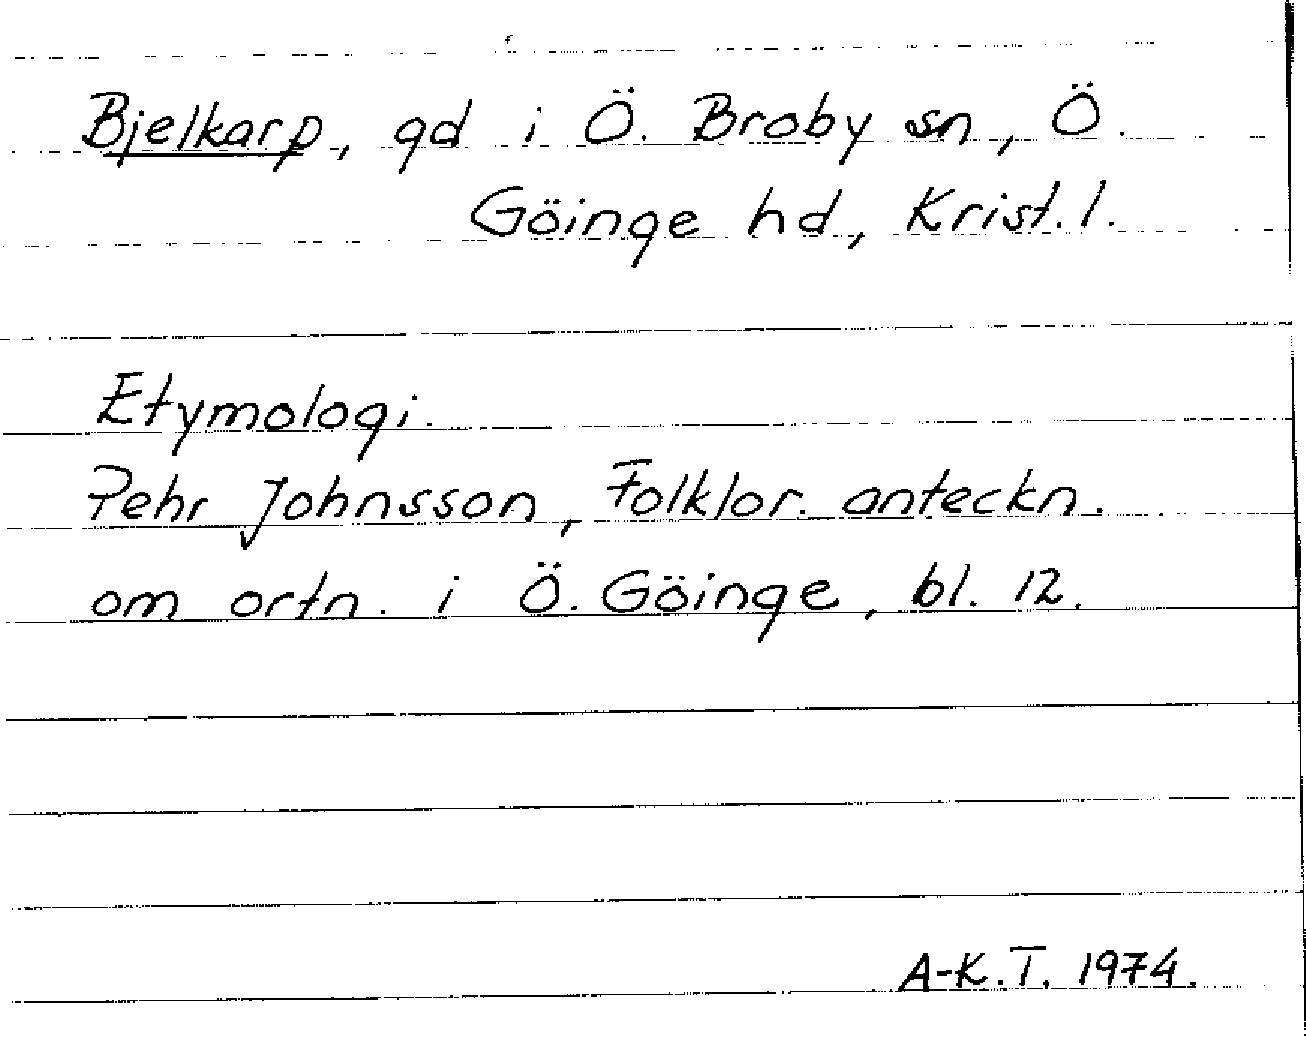 Bjelkarp, gd i Ö. Broby sn, Ö.
Göinge hd, Krist. l.
Etymologi.
Pehr Johnsson, Folklor. anteckn.
om ortn. i Ö. Göinge, bl. 12.
A-K.T. 1974.